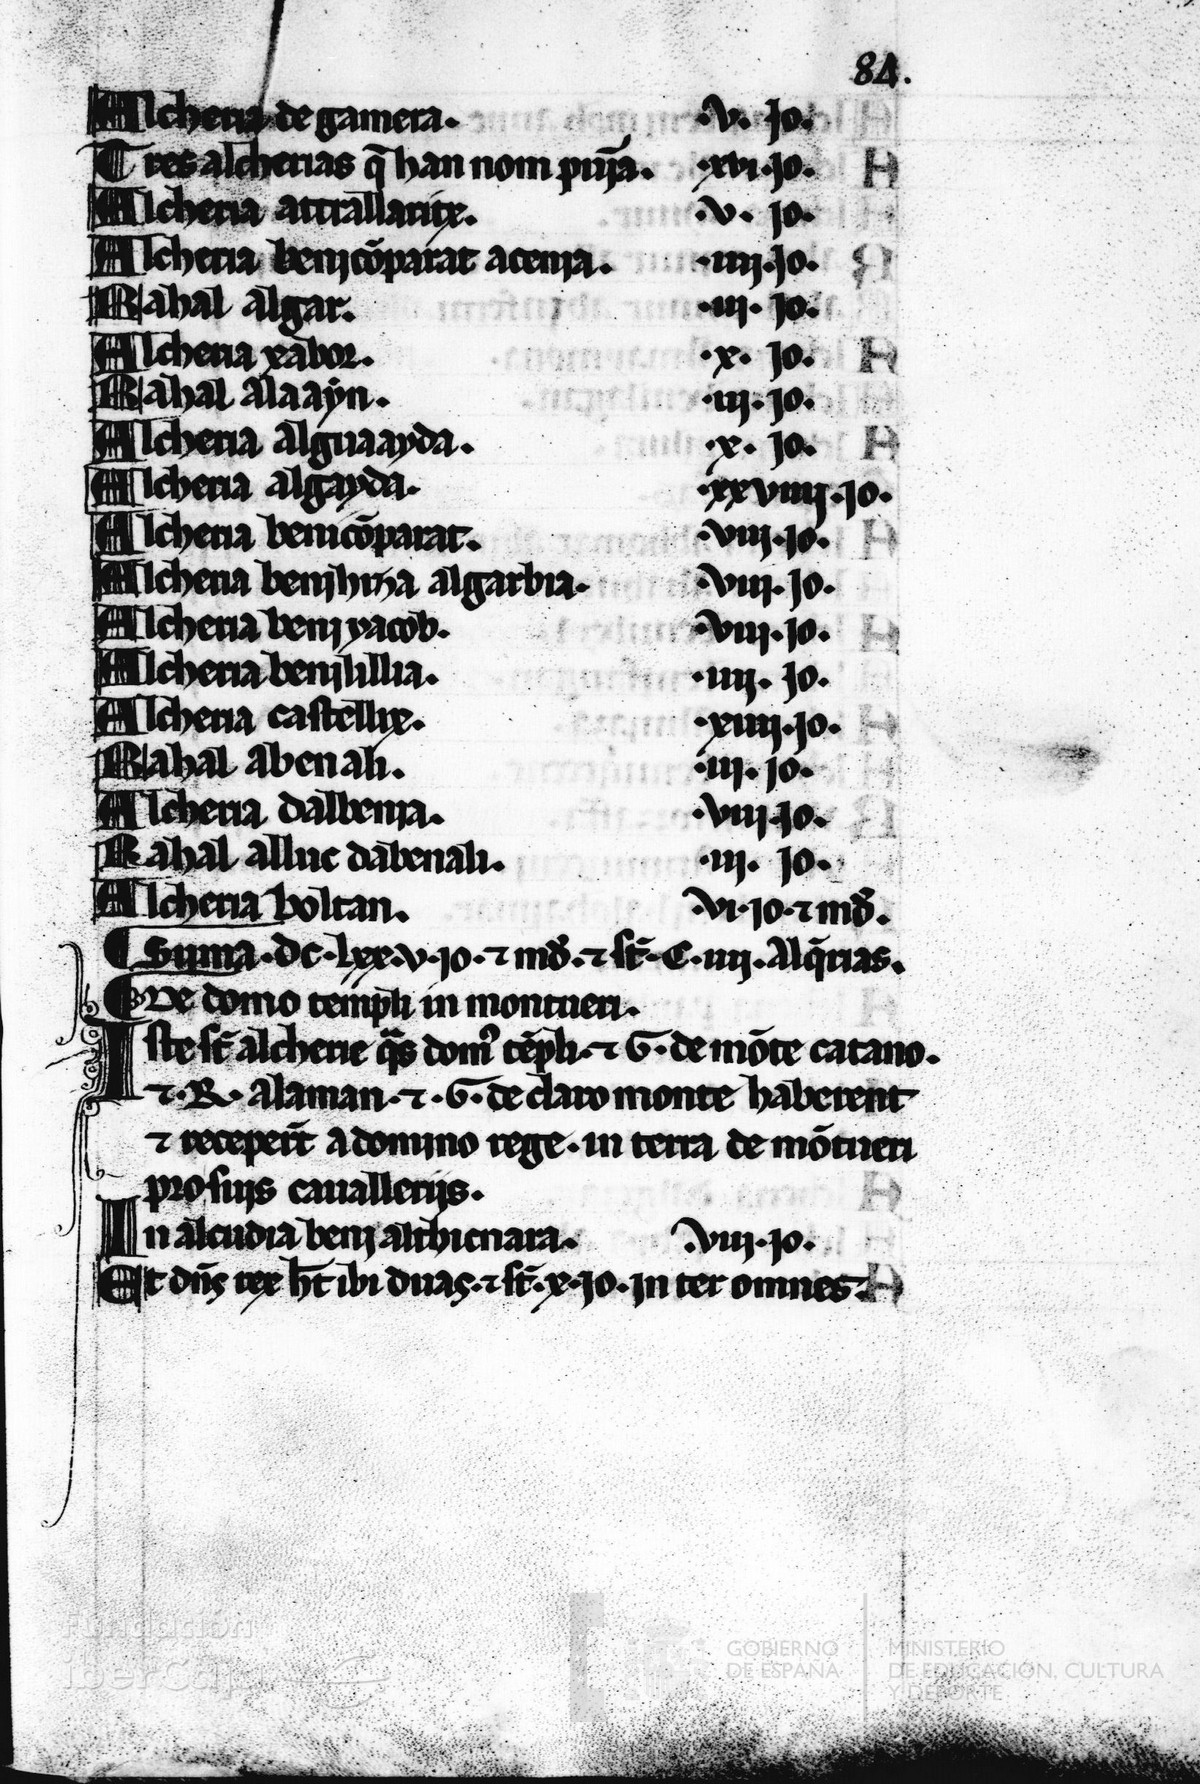 84.
Alcheria de gamera. .v. jo.
Tres alcherias q̄ han nom piuȷ̄a. .xvi.jo.
Alcheria attrallarixe. .v. jo.
Alcheria benicōparat acenia. .iiij.jo.
Rahal algar. .iij. jo.
Alcheria xabor. .x. jo.
Rahal alaayn. .iij.jo.
Alcheria alguaayda. .x. jo.
Alcheria algayda. .xxviiij.jo.
Alcheria benicōparat. .viij.jo.
Alcheria benihiza algarbia. .viij.jo.
Alcheria beni yacob. .viij.jo.
Alcheria benilillia. .iiij. jo.
Alcheria castellix. .xiiij.jo.
Rahal abenali. .iij. jo.
Alcheria dalbenia. .viij.jo.
Rahal alluc dabenali. .iij. jo.
Alcheria boltan. .vi.jo.⁊ md̄.
¶ Suma.dc.lxx.v.jo.⁊ md̄.⁊ st̄.c.iiij.alq̄rias.
¶ De domo templi in montueri.
Iste st̄ alcherie q̄s dom᾿ tēpli.⁊ G. de mōte catano.
⁊.R. alaman.⁊.G. de claro monte haberent
⁊ receper̄t a domino rege.in terra de mōtueri
pro suis cauallerijs.
In alcudia beni atthicnara. .viij.jo.
Et dn̄s rex h̄t ibi duas.⁊ st̄.x.jo.in ter omnes.
Fundación
ibercaja
GOBIERNO
DE ESPAÑA
MINISTERIO
DE EDUCACIÓN, CULTURA
Y DEPORTE